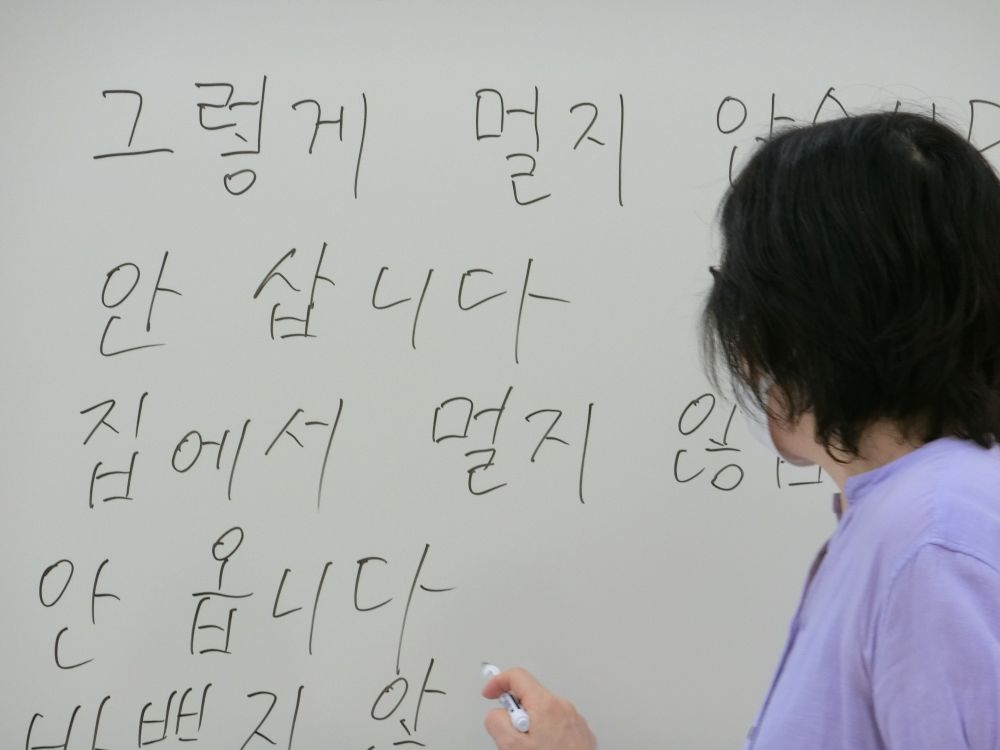 그렇게 멀지
안 삽니다
집에서 멀지
안 옵니다
바쁘지